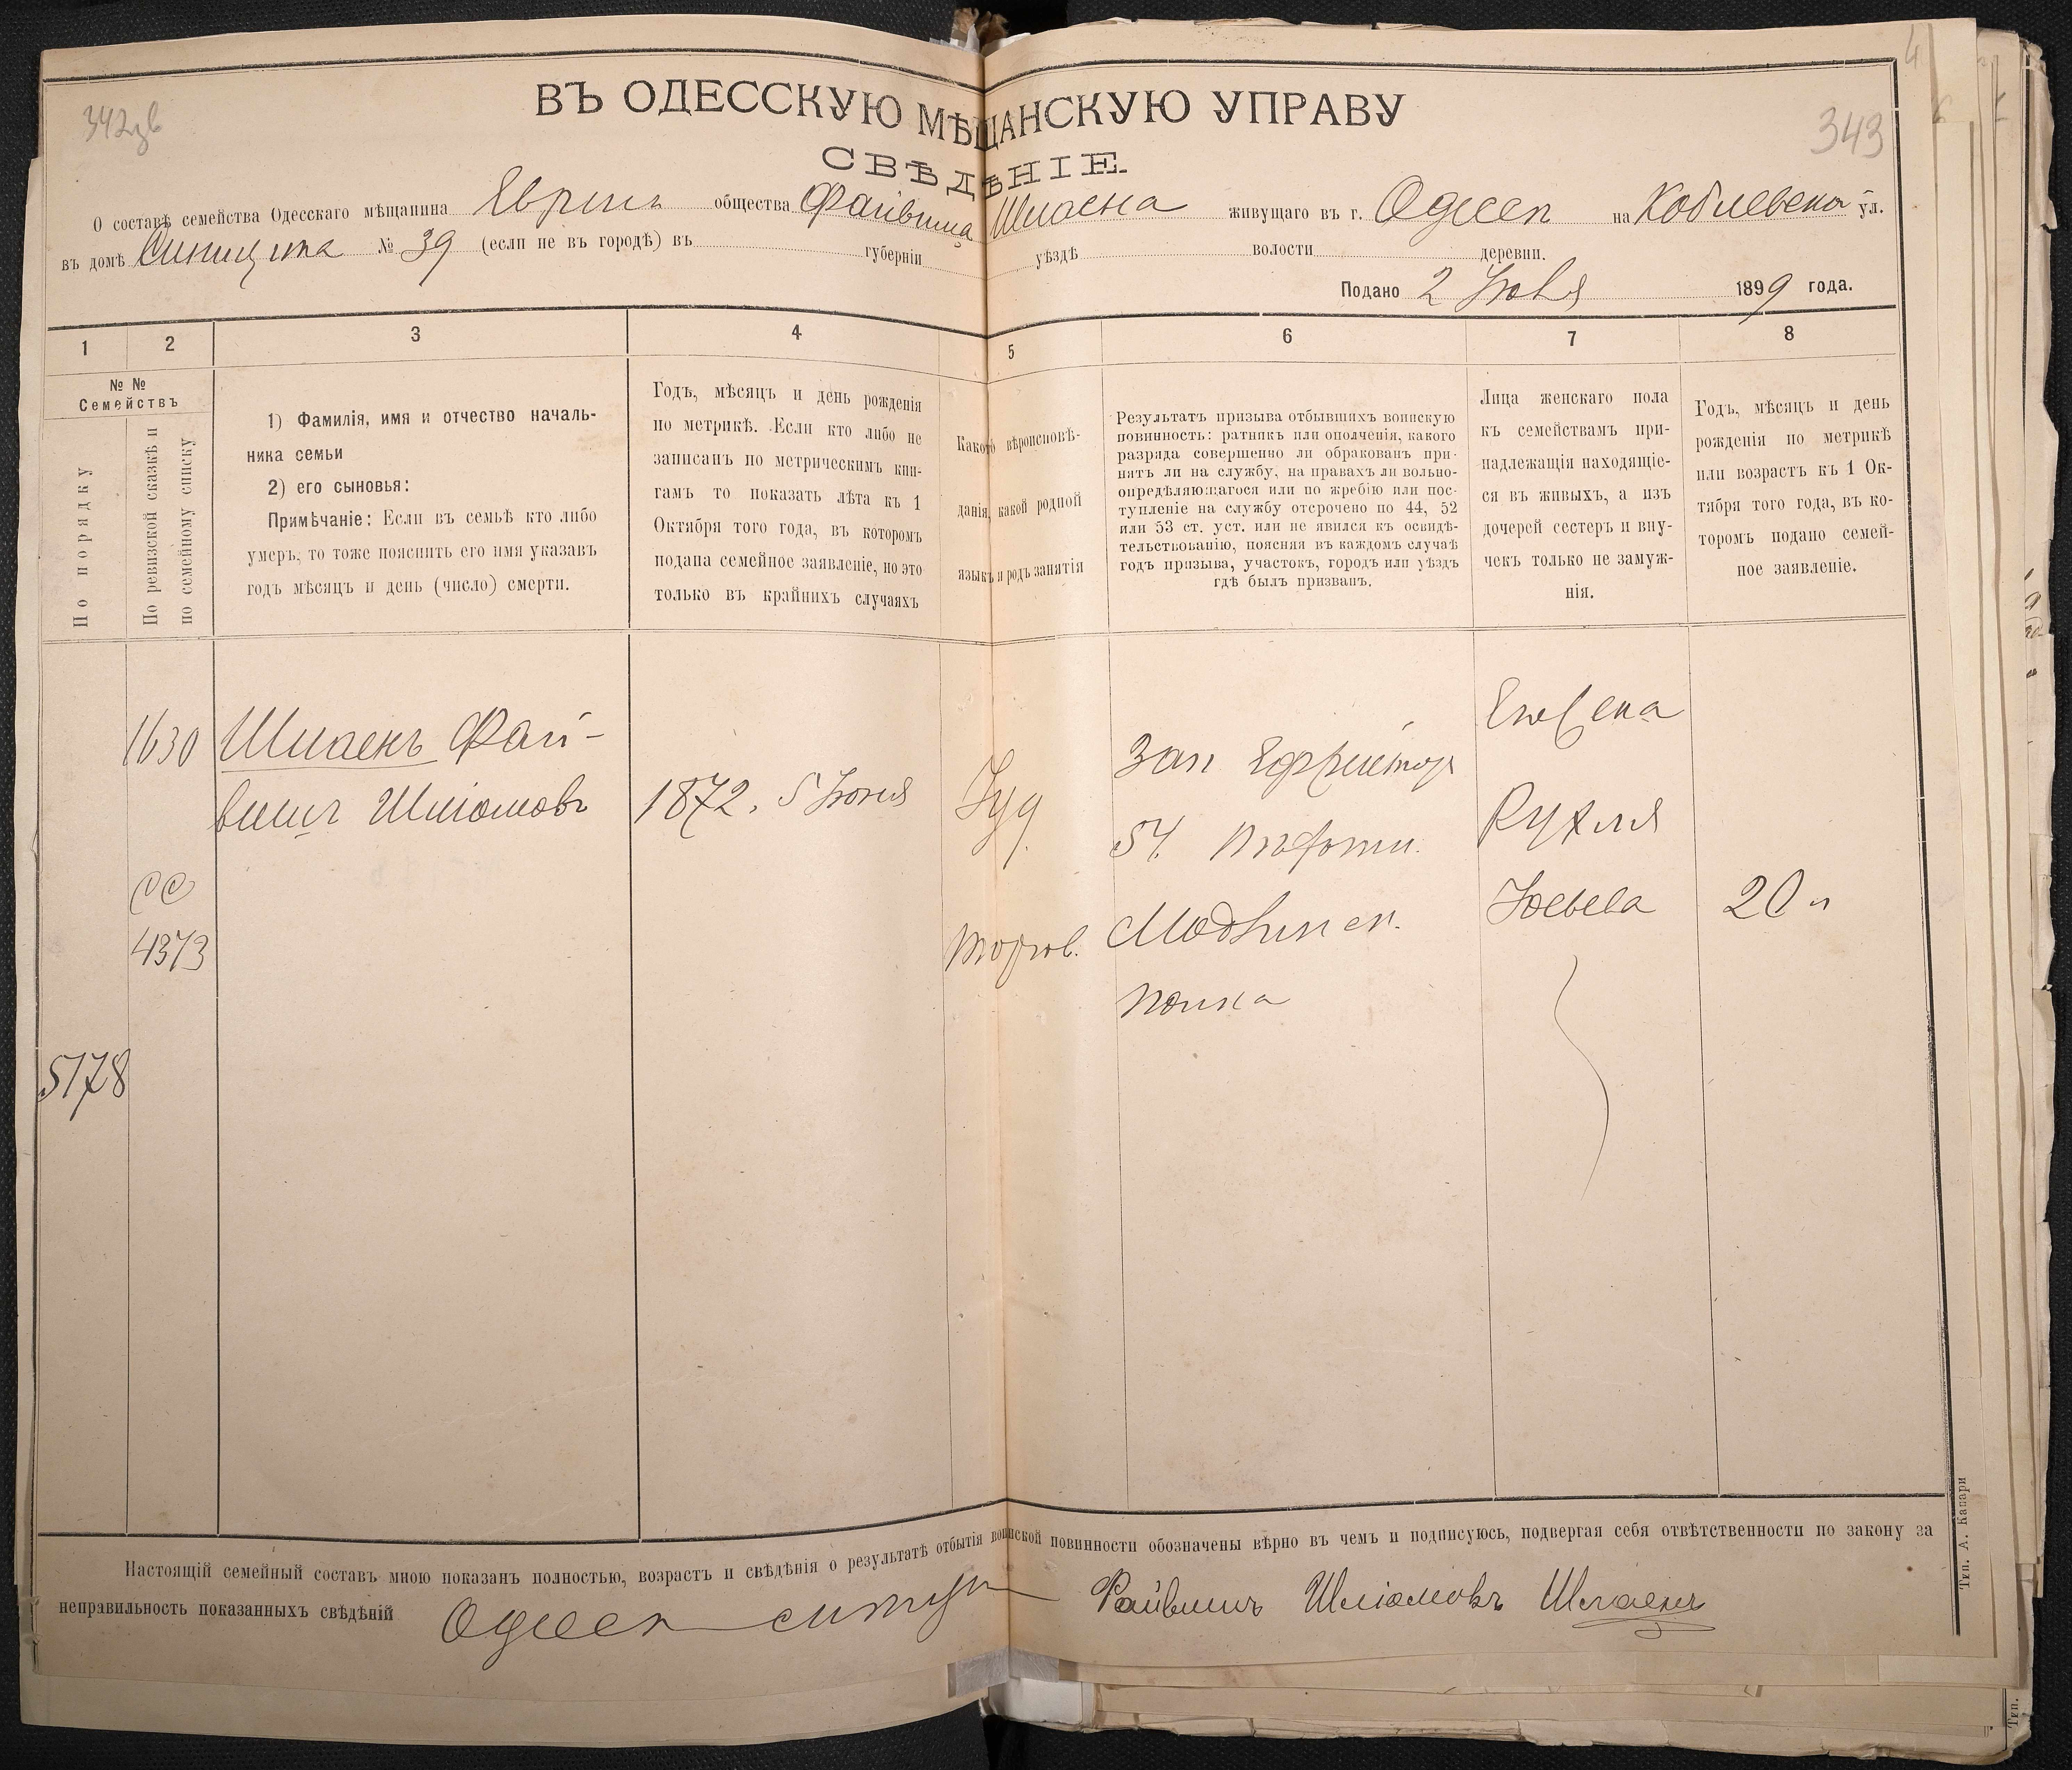 342зв
343
ВЪ ОДЕССКУЮ МѢЩАНСКУЮ УПРАВУ
СВѢДѢНІЕ.
О составѣ семейства Одесскаго мѣщанина общества Файвиша Шпаена живущаго въ г. Одессѣ на Коблевской ул.
въ домѣ Синицина № 39 (если не въ городѣ) въ губерніи уѣздѣ волости деревни.
Подано 2 1899 года.
1 2 3 4 5 6 7 8
№ №
Семействъ
По порядку
По ревизской сказкѣ и
по семейному списку
1) Фамилія, имя и отчество началь-
ника семьи
2) его сыновья:
Примѣчаніе: Если въ семьѣ кто либо
умеръ, то тоже пояснить его имя указавъ
годъ мѣсяцъ и день (число) смерти.
Годъ, мѣсяцъ и день рожденія
по метрикѣ. Если кто либо не
записанъ по метрическимъ кни-
гамъ то показать лѣта къ 1
Октября того года, въ которомъ
подана семейное заявленіе, но это
только въ крайнихъ случаяхъ
Какого вѣроисповѣ-
данія, какой родной
языкъ и родъ занятія
Результатъ призыва отбывшихъ воинскую
повинность: ратникъ или ополченія, какого
разряда совершенно ли обракованъ при-
нятъ ли на службу, на правахъ ли вольно-
опредѣляющагося или по жребію или пос-
тупленіе на службу отсрочено по 44, 52
или 53 ст. уст. или не явился къ освидѣ-
тельствованію, поясняя въ каждомъ случаѣ
годъ призыва, участокъ, городъ или уѣздъ
гдѣ былъ призванъ.
Лица женскаго пола
къ семействамъ при-
надлежащія находящіе-
ся въ живыхъ, а изъ
дочерей сестеръ и вну-
чекъ только не замуж-
нія.
Годъ, мѣсяцъ и день
рожденія по метрикѣ
или возрастъ къ 1 Ок-
тября того года, въ ко-
торомъ подано семей-
ное заявленіе.
1630 Шпаенъ Фай-
вишъ Шліомовъ 1872. 5 Іюня Іуд. Зап Ефрейтор
Его жена
54 пѣхотн. Рухля
СС
4373 торгов. Минск. 20 л
полка
5178
Настоящій семейный составъ мною показанъ полностью, возрастъ и свѣдѣнія о результатѣ отбытія воинской повинности обозначены вѣрно въ чемъ и подписуюсь, подвергая себя отвѣтственности по закону за
неправильность показанныхъ свѣдѣній Файвишъ Шліомовъ Шпаенъ
Тип. А. Капари